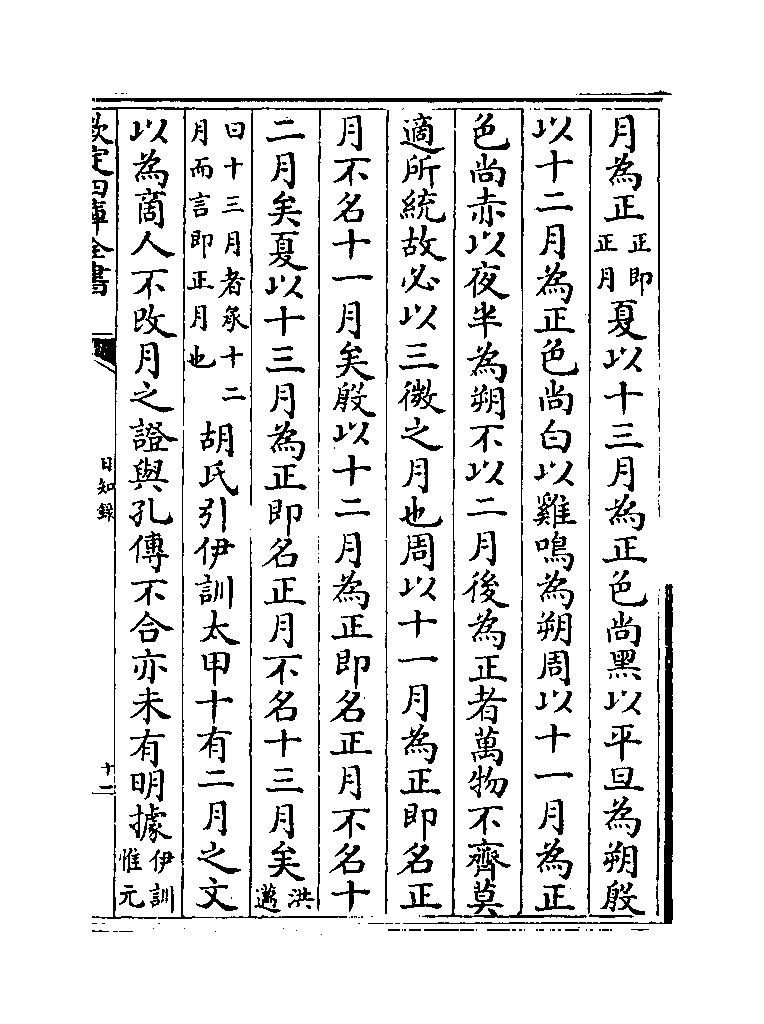 月為正正即正月夏以十三月為正色尚黑以平旦為朔殷
以十二月為正色尚白以雞鳴為朔周以十一月為正
色尚赤以夜半為朔不以二月後為正者萬物不齊莫
適所統故必以三微之月也周以十一月為正即名正
月不名十一月矣殷以十二月為正即名正月不名十
二月矣夏以十三月為正即名正月不名十三月矣洪邁
曰十三月者承十二月而言即正月也胡氏引伊訓太甲十有二月之文
以為商人不改月之證與孔傳不合亦未有明據伊訓惟元
欽定四庫全書
日知錄
十一